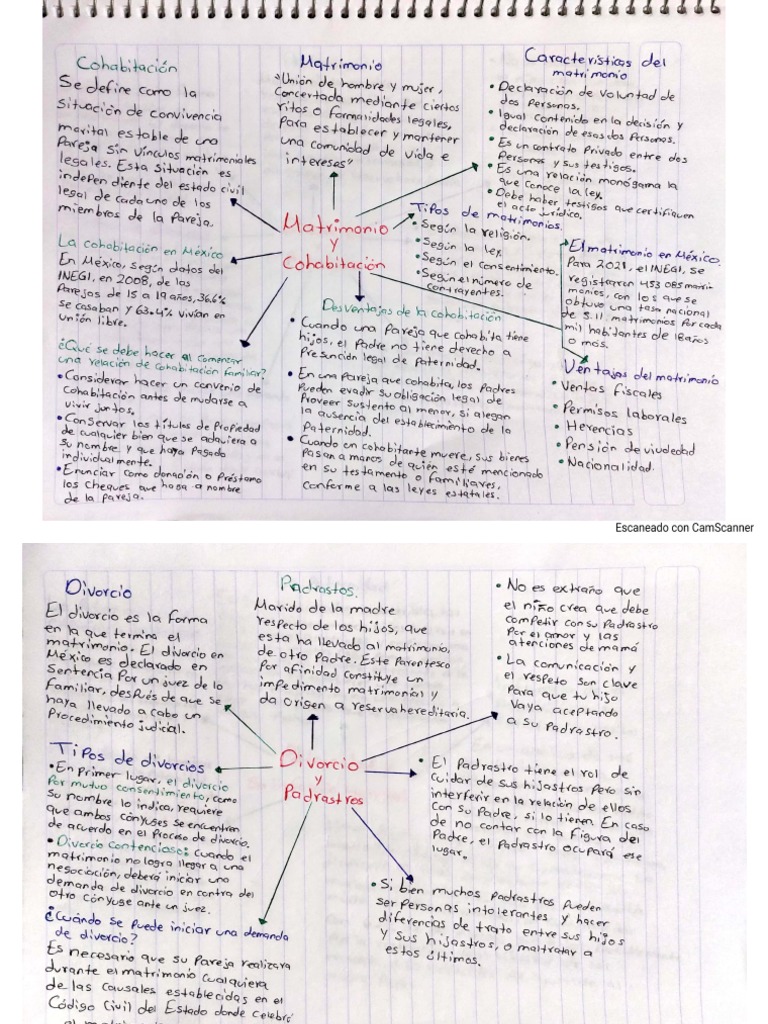 Cohabitación
Se define como la
Situación de convivencia
marital estable de una
Pareja sin vínculos matrimoniales
legales. Esta situación es
independiente del estado civil
legal de cada uno de los
miembros de la Pareja.
La cohabitación en México
En México, según datos del
INEGI, en 2008, de las
Parejas de 15 a 19 años, 36.6%
se casaban y 63.4% vivían en
unión libre.
¿Qué se debe hacer al comenzar
una relación de cohabitación familiar?
• Considerar hacer un convenio de
cohabitación antes de mudarse a
vivir juntos.
• Conservar los títulos de Propiedad
de cualquier bien que se adquiera a
su nombre y que haya Pagado
individualmente.
• Enunciar como donación o Préstamo
los cheques que haga a nombre
de la pareja.
Matrimonio
"Unión de hombre y mujer,
Concertada mediante ciertos
ritos o formalidades legales,
Para establecer y mantener
una comunidad de vida e
intereses"
Matrimonio
y
Cohabitación
Características del
matrimonio
• Declaración de voluntad de
dos Personas.
• Igual contenido en la decisión y
declaración de esas dos Personas.
• Es un contrato Privado entre dos
Personas y sus testigos.
• Es una relación monógama la
que conoce la ley.
• Debe haber testigos que certifiquen
el acto jurídico.
Tipos de matrimonios.
• Según la religión.
• Según la ley.
• Según el consentimiento.
• Según el número de
contrayentes.
El matrimonio en México.
Para 2021, el INEGI, se
registraron 453 085 matri-
monios, con los que se
obtuvo una tasa nacional
de 5.11 matrimonios Por cada
mil habitantes de 18 años
o más.
Desventajas de la cohabitación
• Cuando una Pareja que cohabita tiene
hijos, el Padre no tiene derecho a
Presunción legal de Paternidad.
• En una Pareja que cohabita, los Padres
Pueden evadir su obligación legal de
Proveer sustento al menor, si alegan
la ausencia del establecimiento de la
Paternidad.
• Cuando un cohabitante muere, sus bienes
Pasan a manos de quién esté mencionado
en su testamento o familiares,
conforme a las leyes estatales.
Ventajas del matrimonio
• Ventas fiscales
• Permisos laborales
• Herencias
• Pensión de viudedad
• Nacionalidad.
Escaneado con CamScanner
Divorcio
El divorcio es la forma
en la que termina el
matrimonio. El divorcio en
México es declarado en
Sentencia Por un juez de lo
Familiar, después de que se
haya llevado a cabo un
Procedimiento judicial.
Tipos de divorcios
• En Primer lugar, el divorcio
Por mutuo consentimiento, como
su nombre lo indica, requiere
que ambos cónyuges se encuentren
de acuerdo en el Proceso de divorcio.
• Divorcio contencioso: Cuando el
matrimonio no logra llegar a una
negociación, deberá iniciar una
demanda de divorcio en contra del
otro cónyuge ante un juez.
¿Cuándo se puede iniciar una demanda
de divorcio?
Es necesario que su Pareja realizara
durante el matrimonio cualquiera
de las causales establecidas en el
Código Civil del Estado donde celebró
Padrastos.
Marido de la madre
respecto de los hijos, que
esta ha llevado al matrimonio,
de otro Padre. Este Parentesco
Por afinidad constituye un
impedimento matrimonial y
da origen a reserva hereditaria.
Divorcio
y
Padrastros
• No es extraño que
el niño crea que debe
competir con su Padrastro
Por el amor y las
atenciones de mamá
• La comunicación y
el respeto son clave
Para que tu hijo
Vaya aceptando
a su Padrastro.
• El Padrastro tiene el rol de
cuidar de sus hijastros Pero sin
interferir en la relación de ellos
con su Padre, si lo tienen. En caso
de no contar con la figura del
Padre, el Padrastro ocupará ese
lugar.
• Si bien muchos Padrastros Pueden
ser Personas intolerantes y hacer
diferencias de trato entre sus hijos
y sus hijastros, o maltratar a
estos últimos.